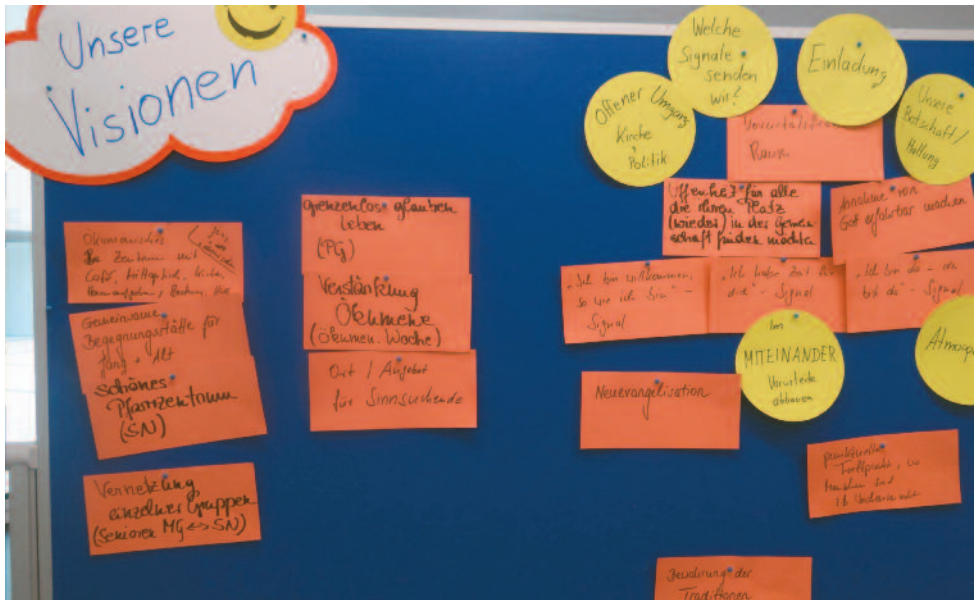 Unsere
Visionen
Ökumenisches
Zentrum mit
Café, Mittagstisch,
Gemeinsame
Begegnungsstätte für
Jung + Alt
Schönes
Pfarrzentrum
(SN)
Vernetzung
einzelner Gruppen
(Senioren MG <-> SN)
Grenzenlos glauben
Leben
(PG)
Verstärkung
Ökumene
(Ökumen. Woche)
Ort / Angebot
für Sinnsuchende
Offener Umgang
Kirche
Politik
Welche
Signale
senden
wir?
Einladung
Unsere
Botschaft /
Haltung
Raum
Offenheit für alle
die ihren Platz
(wieder) in der Gemein
schaft finden möchten
Annahme von
Gott erfahrbar machen
"Ich bin willkommen,
so wie ich bin" -
Signal
"Ich habe Zeit für
dich" - Signal
"Ich bin da - du
bist da" - Signal
Im
MITEINANDER
Vorurteile
abbauen
Atmosp
Neuevangelisation
Treffpunkte, wo
Menschen sich
Bewahrung der
Traditionen